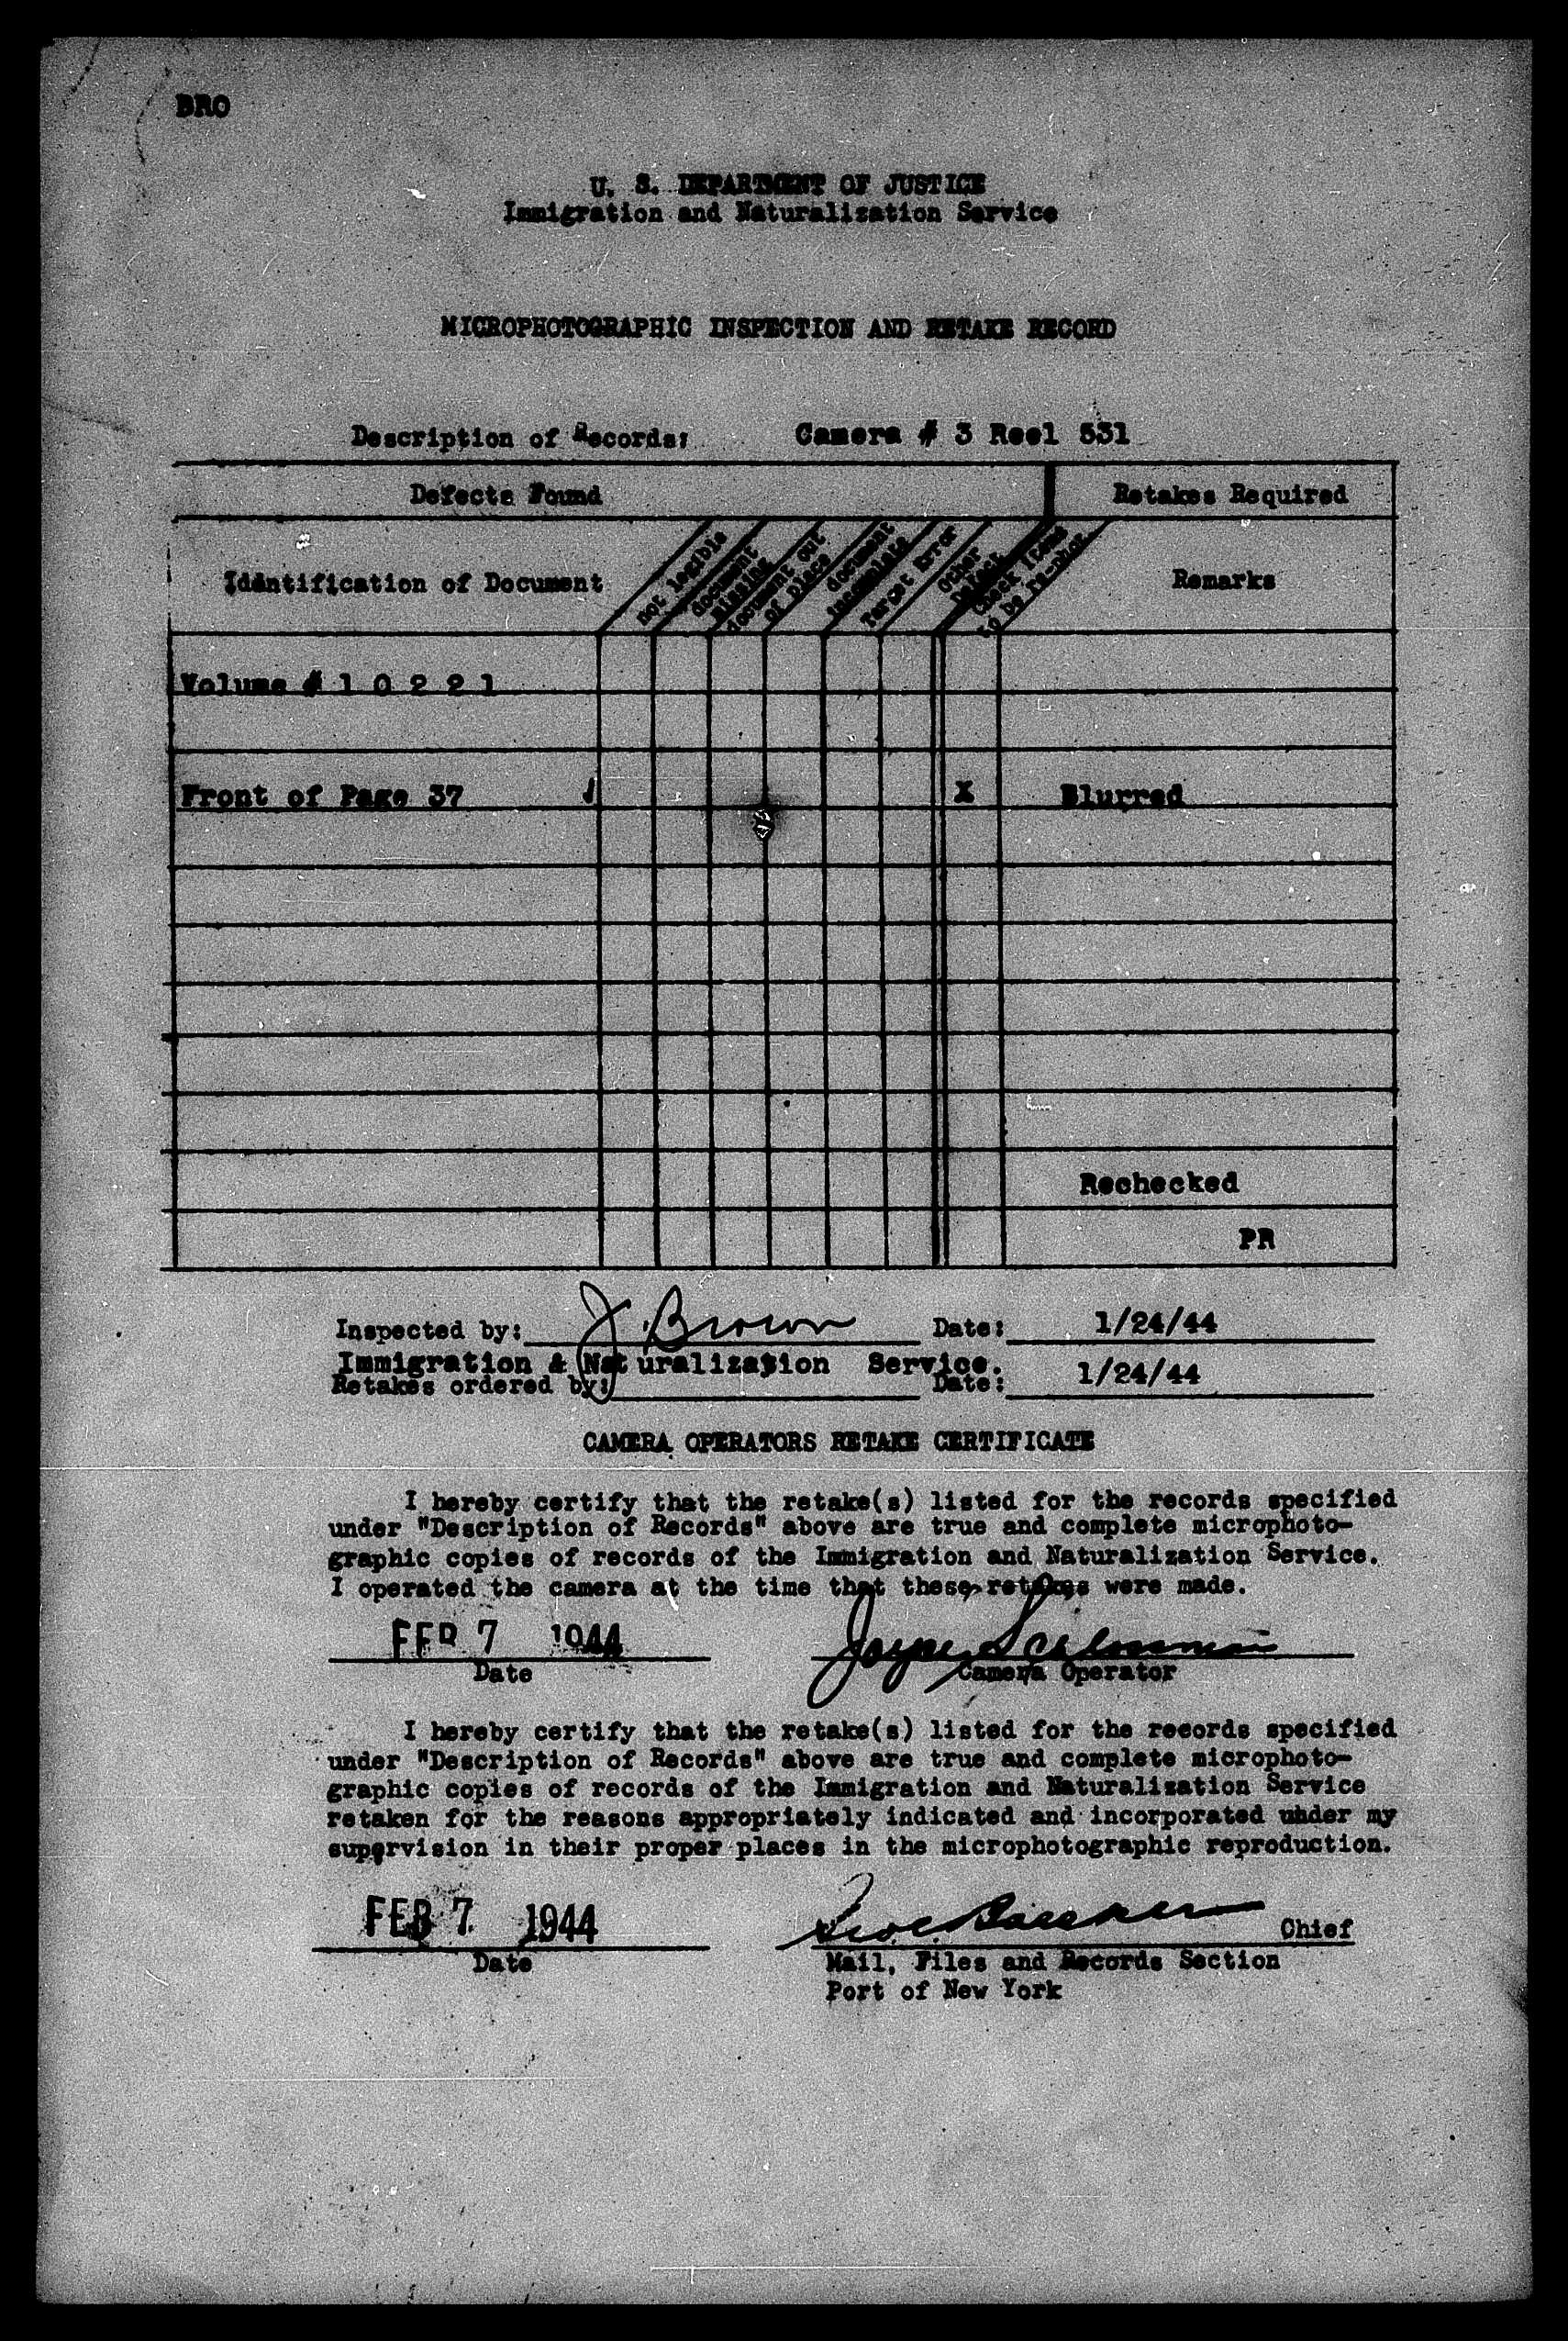 BRO
U. S. DEPARTMENT OF JUSTICE
Immigration and Naturalization Service
MICROPHOTOGRAPHIC INSPECTION AND RETAKE RECORD
Description of Records: Camera # 3 Reel 531
Defects Found Retakes Required
Identification of Document
not legible
document
missing
document out
of place
document
incomplete
Target Error
Other
Defect
Check items
to be re-phot
Remarks
Volume # 1 0 2 2 1
Front of Page 37 X Blurred
Rechecked
PR
Inspected by: J. Brown Date: 1/24/44
Immigration & Naturalization Service.
Retakes ordered by: Date: 1/24/44
CAMERA OPERATORS RETAKE CERTIFICATE
I hereby certify that the retake(s) listed for the records specified
under "Description of Records" above are true and complete microphoto-
graphic copies of records of the Immigration and Naturalization Service.
I operated the camera at the time that these retakes were made.
FEB 7 1944
Date Camera Operator
I hereby certify that the retake(s) listed for the records specified
under "Description of Records" above are true and complete microphoto-
graphic copies of records of the Immigration and Naturalization Service
retaken for the reasons appropriately indicated and incorporated under my
supervision in their proper places in the microphotographic reproduction.
FEB 7 1944 Chief
Date Mail, Files and Records Section
Port of New York